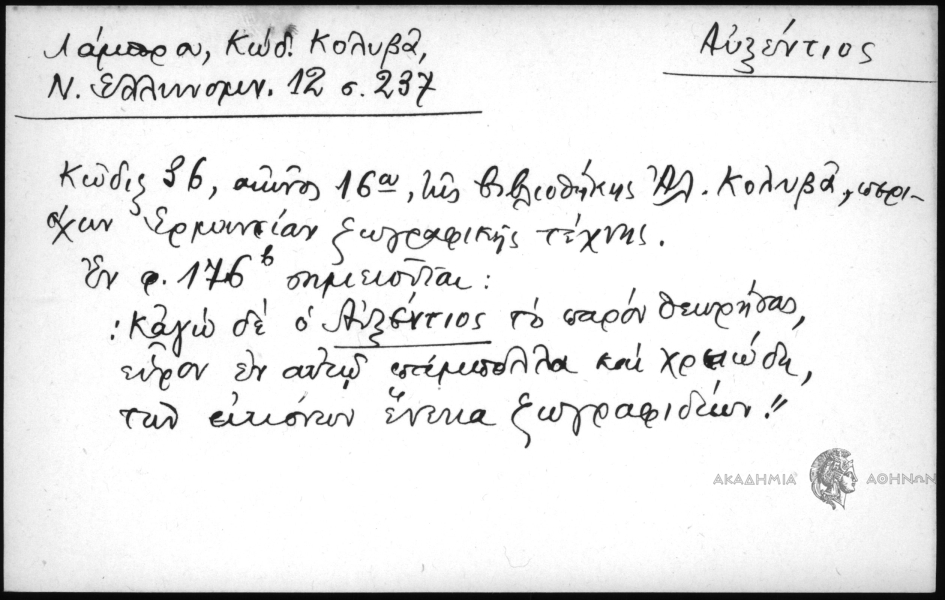 Λάμπρου, Κώδ. Κολυβᾶ,
Ν. Ἑλληνομν. 12 σ. 237
Αὐξέντιος
Κῶδιξ 36, αἰῶνος 16ου, τῆς βιβλιοθήκης Ἀλ. Κολυβᾶ, περι-
έχων Ἑρμηνείαν ζωγραφικῆς τέχνης.
Ἐν φ. 176β σημειοῦται:
"Κἀγὼ δὲ ὁ Αὐξέντιος τὸ παρὸν θεωρήσας,
εὗρον ἐν αὐτῷ πάμπολλα καὶ χρειώδη,
τῶν εἰκόνων ἕνεκα ζωγραφιδίων."
ΑΚΑΔΗΜΙΑ ΑΘΗΝΩΝ